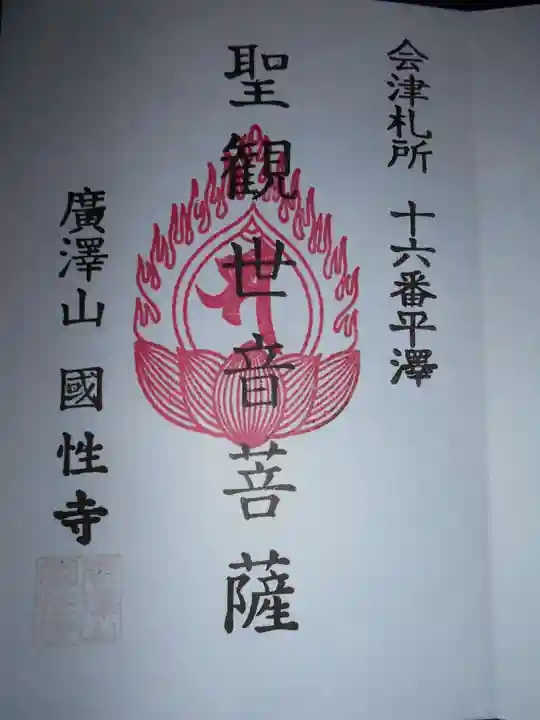 会津札所 十六番平澤
聖観世音菩薩
廣澤山 國性寺